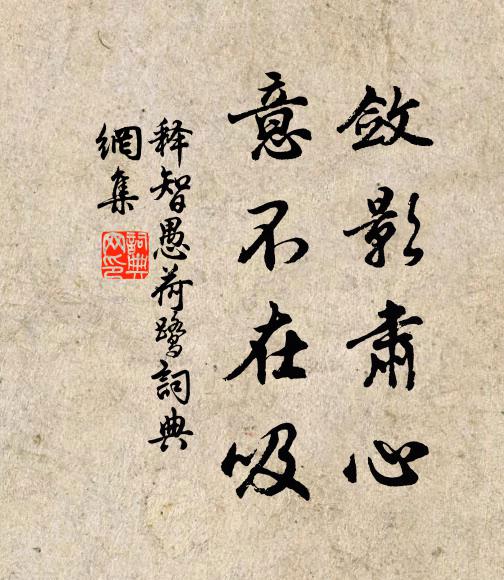 斂影肅心
意不在吸
释智愚荷鹭詞典
網集
詞典
网印